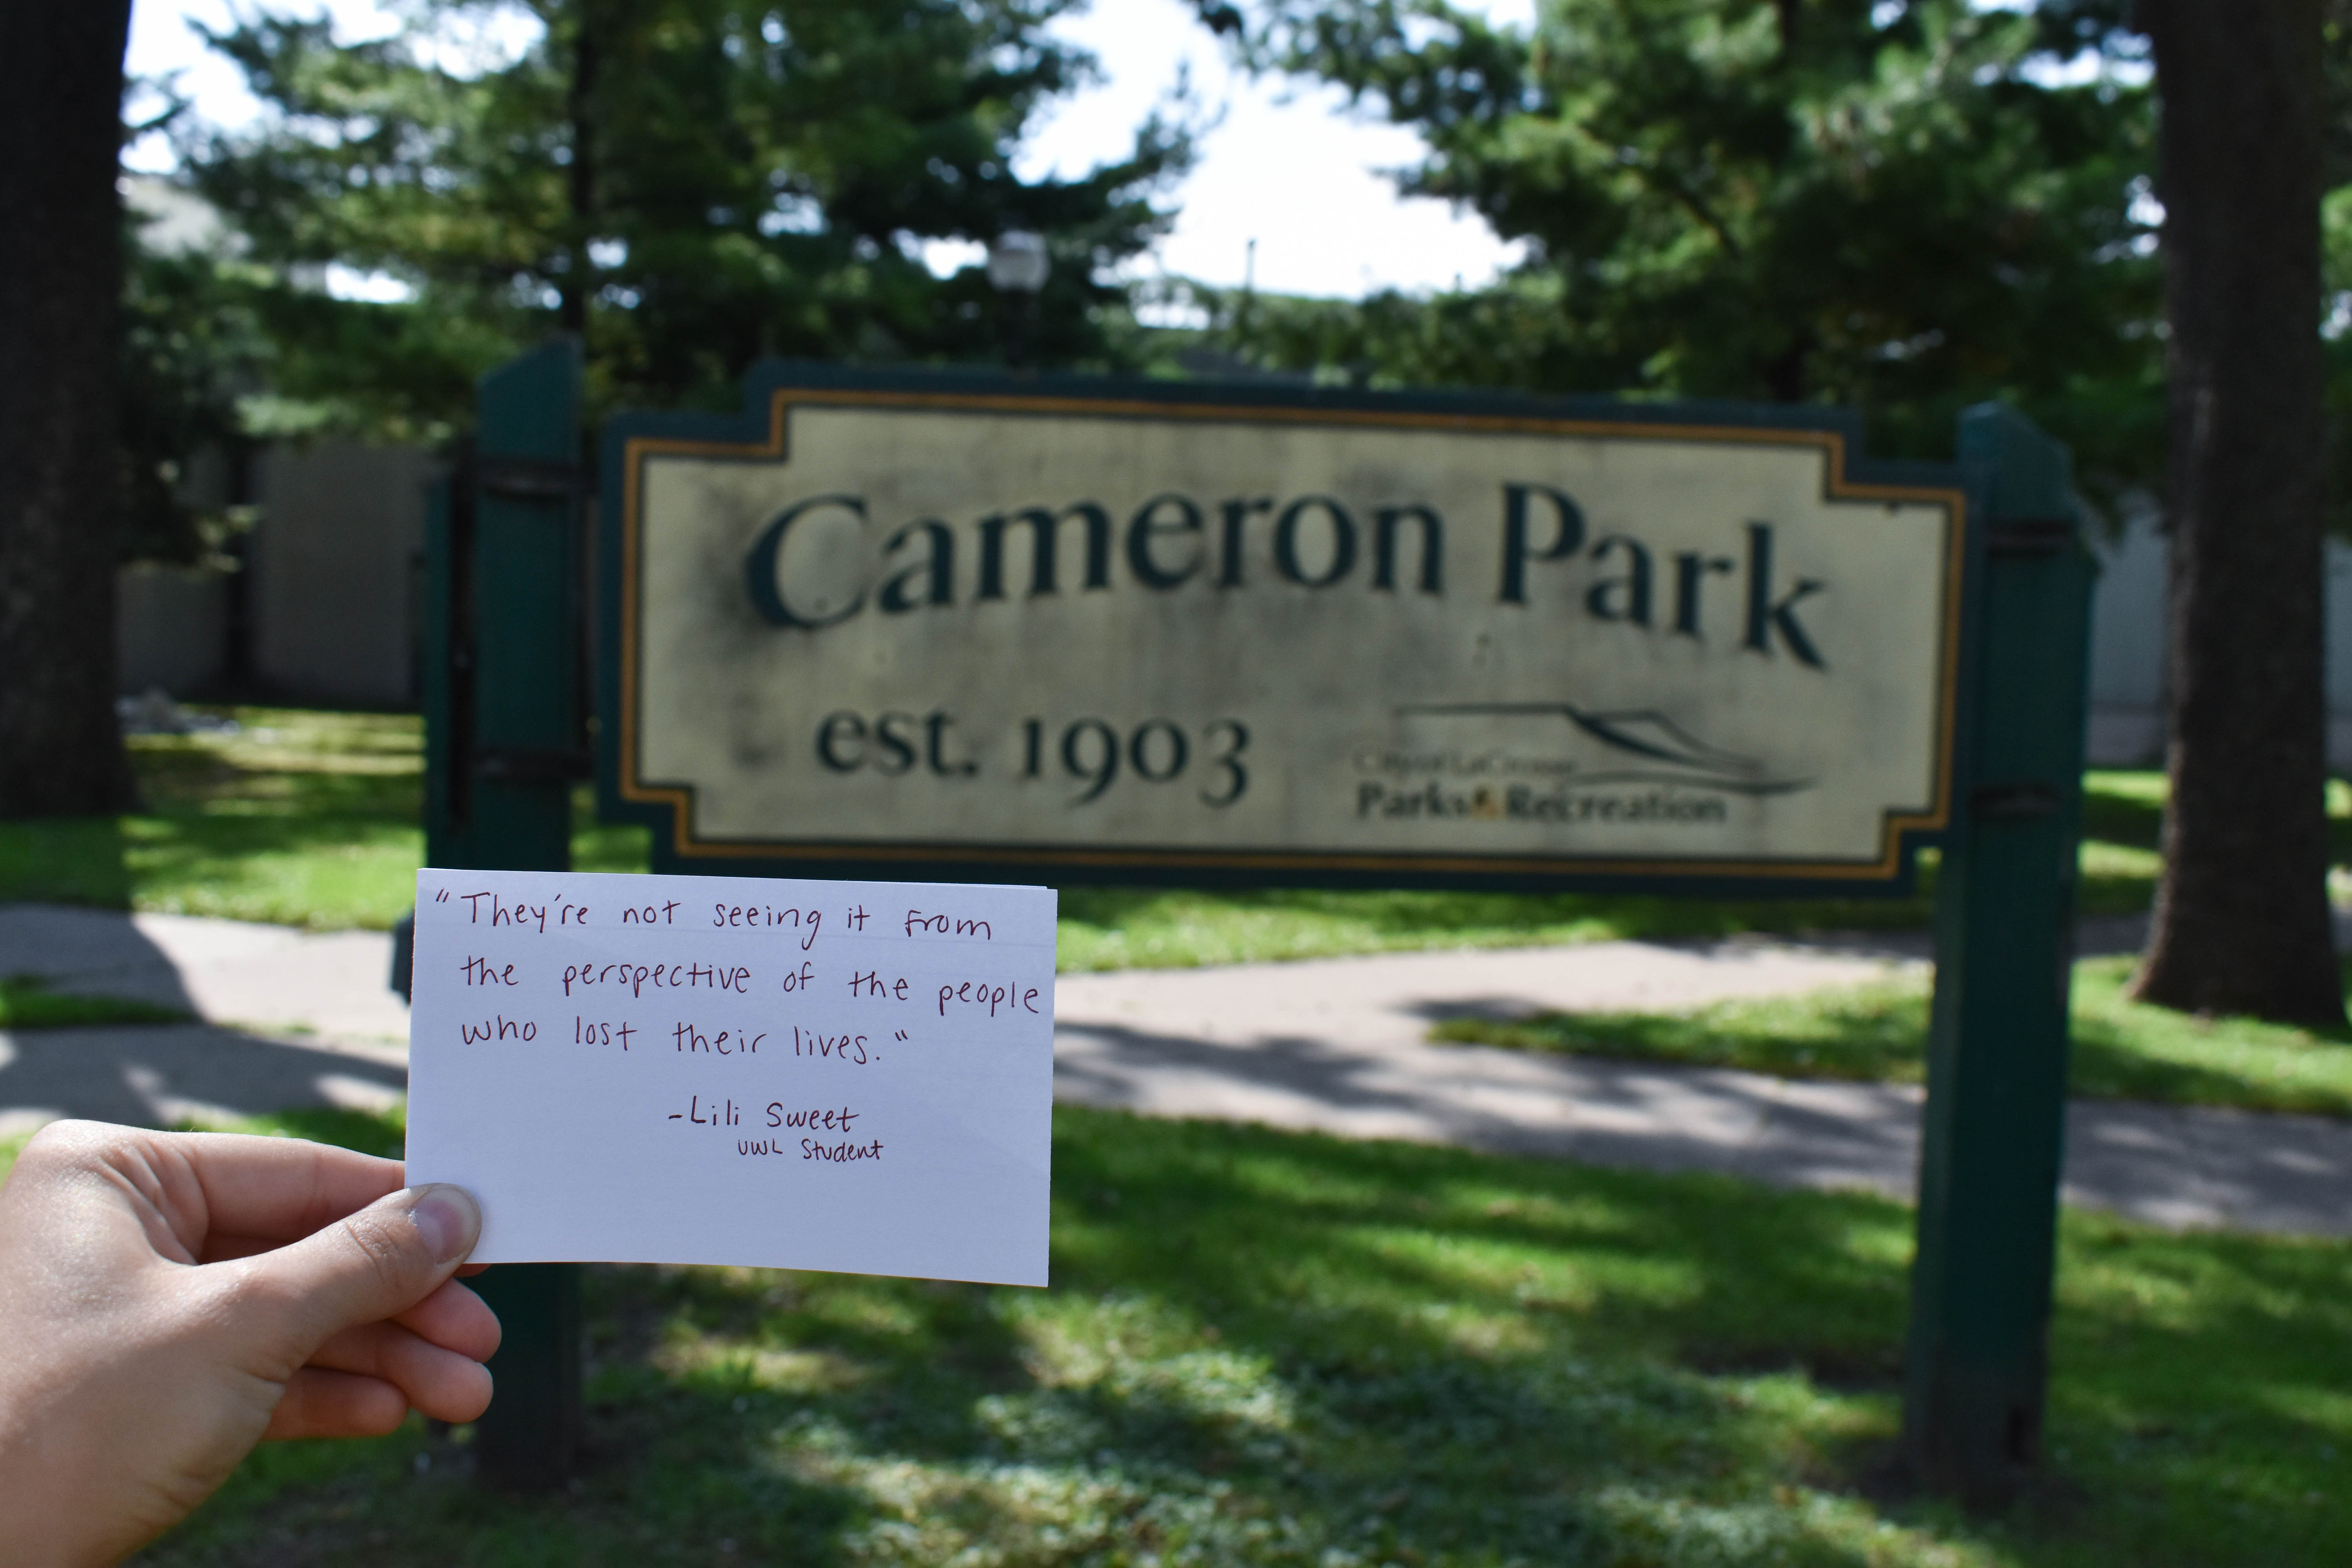 Cameron Park
est. 1903
City of LaCrosse
Parks & Recreation
"They're not seeing it from
the perspective of the people
who lost their lives."
-Lili Sweet
UWL Student